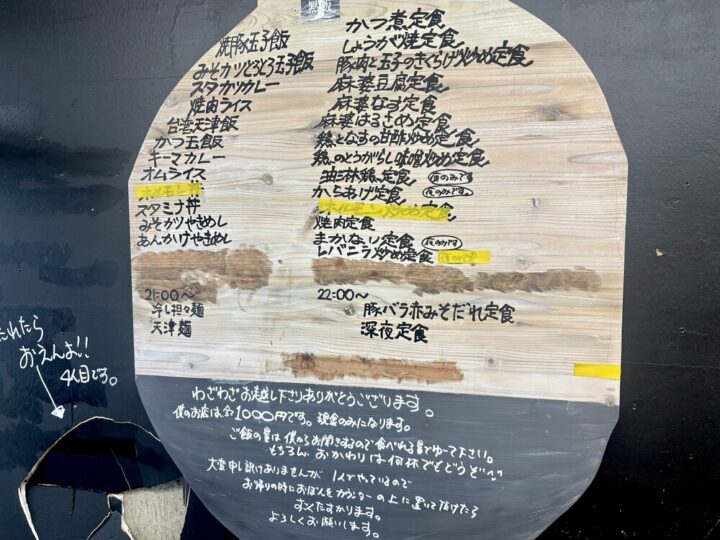 焼豚玉子飯
みそカツとろとろ玉子飯
スタカツカレー
焼肉ライス
台湾天津飯
かつ玉飯
キーマカレー
オムライス
ホルモン丼
スタミナ丼
みそカツやきめし
あんかけやきめし
21:00〜
冷し担々麺
天津麺
かつ煮定食
しょうが焼定食
豚肉と玉子のきくらげ炒め定食
麻婆豆腐定食
麻婆なす定食
麻婆はるさめ定食
鶏となすの甘酢炒め定食
鶏のとうがらし味噌炒め定食
油淋鶏定食 夜のみです
からあげ定食 夜のみです。
ホルモン炒め定食
焼肉定食
まかない定食 夜のみです
レバニラ炒め定食 夜のみです
22:00〜
豚バラ赤みそだれ定食
深夜定食
わざわざお越し下さりありがとうございます。
僕のお店は全1000円です。現金のみになります。
ご飯の量は僕からお聞きするので食べれる量でゆって下さい。
もちろん おかわりは何杯でもどうぞ^^
大変申し訳ありませんが 1人でやっているので
お帰りの時におぼんをカウンターの上に置いて頂けたら
すごくたすかります。
よろしくお願いします。
たれたら
おえんよ!!
4人目です。